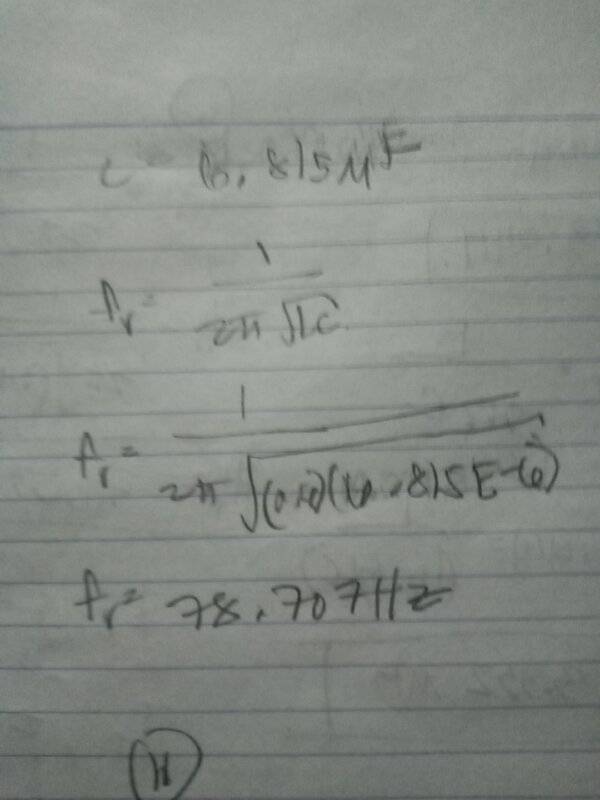 C = 6.815μF
fr = 1 / 2π √LC
fr = 1 / 2π √(0.6)(6.815E-6)
fr = 78.707Hz
11